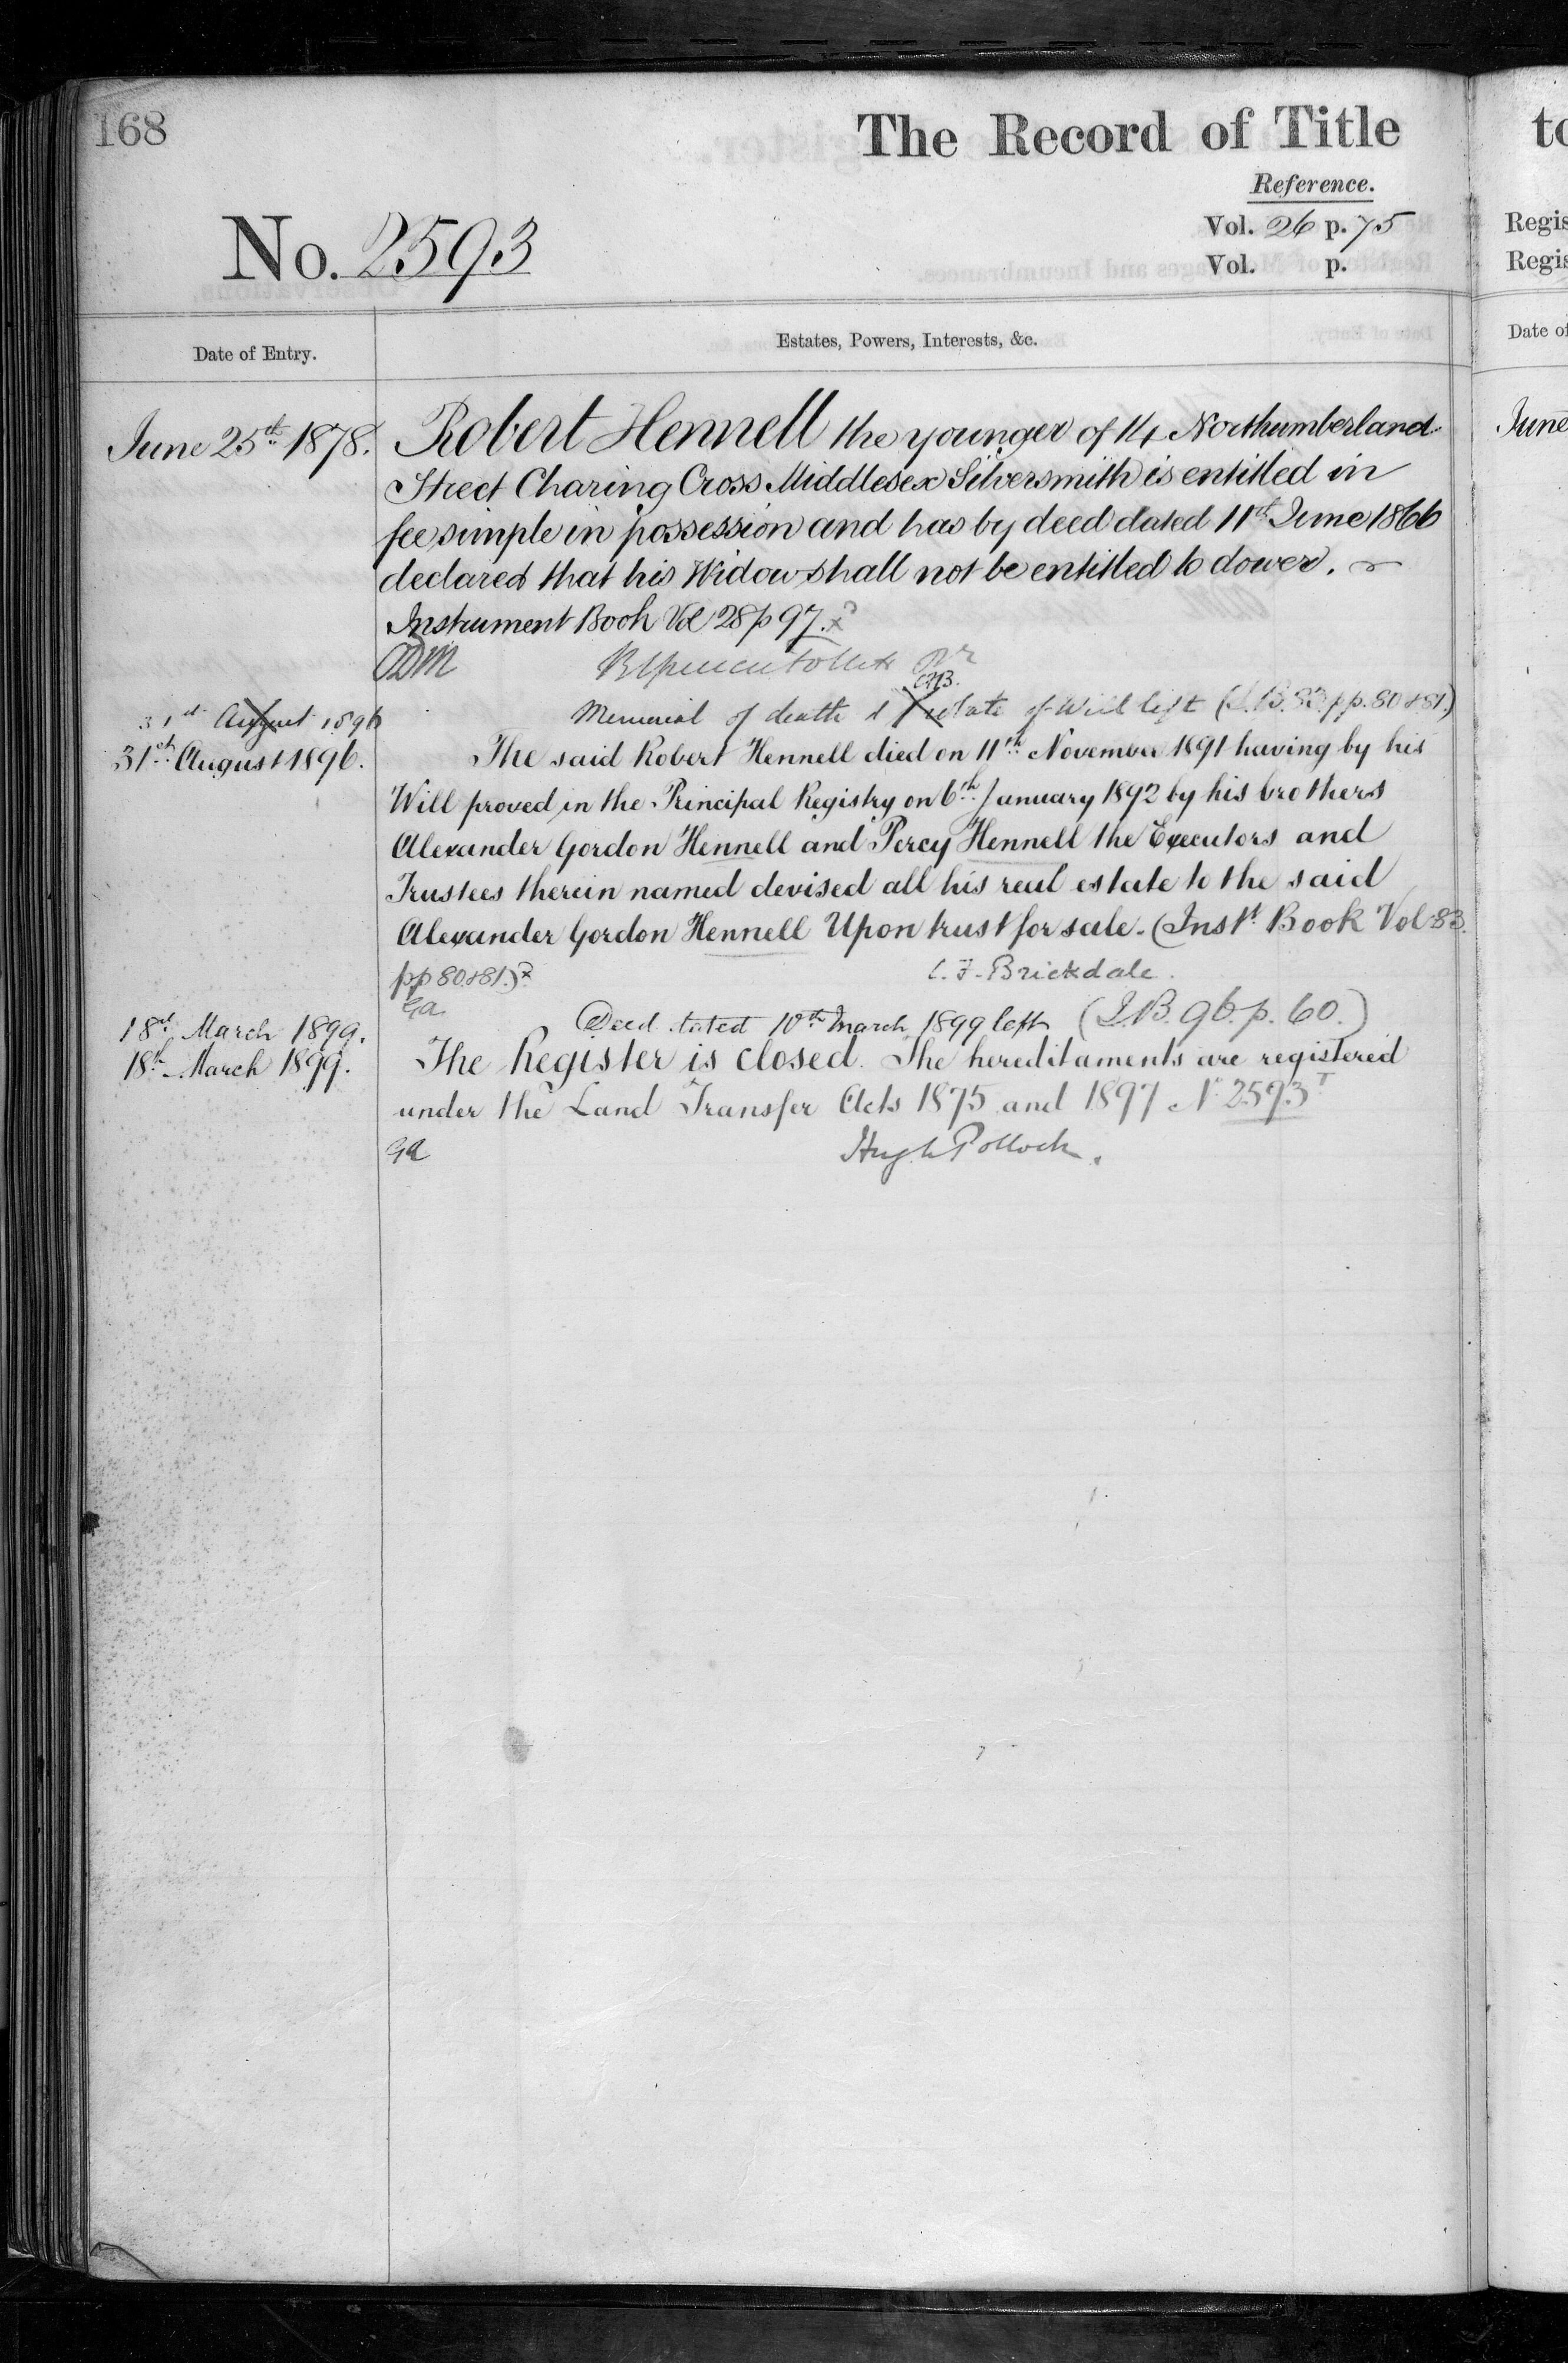 168
The Record of Title
to
Reference.
No. 2593
Vol. 26 p. 75
Vol. p.
Regis
Regis
Date of Entry.
Estates, Powers, Interests, &c.
Date of
June 25th 1878.
Robert Hennell the younger of 14 Northumberland
June
Street Charing Cross Middlesex Silversmith is entitled in
fee simple in possession and has by deed dated 11th June 1866
declared that his Widow shall not be entitled to dower.
Instrument Book Vol 28 p 97.
ODM
CFB.
31st August 1896
Memorial of death & Probate of Will left (I.B. 83 pp. 80 & 81.)
31st August 1896.
The said Robert Hennell died on 11th November 1891 having by his
Will proved in the Principal Registry on 6th January 1892 by his brothers
Alexander Gordon Hennell and Percy Hennell the Executors and
Trustees therein named devised all his real estate to the said
Alexander Gordon Hennell Upon trust for sale. (Inst. Book Vol 83.
pp 80 & 81.)
C. F. Brickdale.
Ga
18th March 1899.
Deed dated 10th March 1899 left (I.B. 96. p. 60.)
18th March 1899.
The Register is closed. The hereditaments are registered
under the Land Transfer Acts 1875 and 1897 No 2593T
Ga
Hugh Pollock.